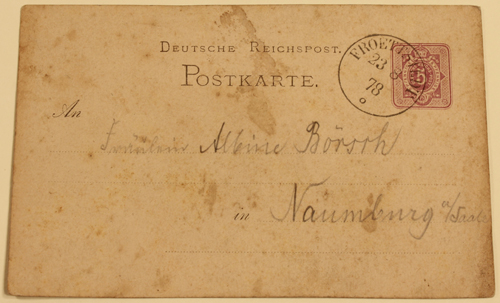 DEUTSCHE REICHSPOST.
POSTKARTE.
FROETT
23
8
78
5
An
Fräulein Albine Börsch
in Naumburg a/Saale